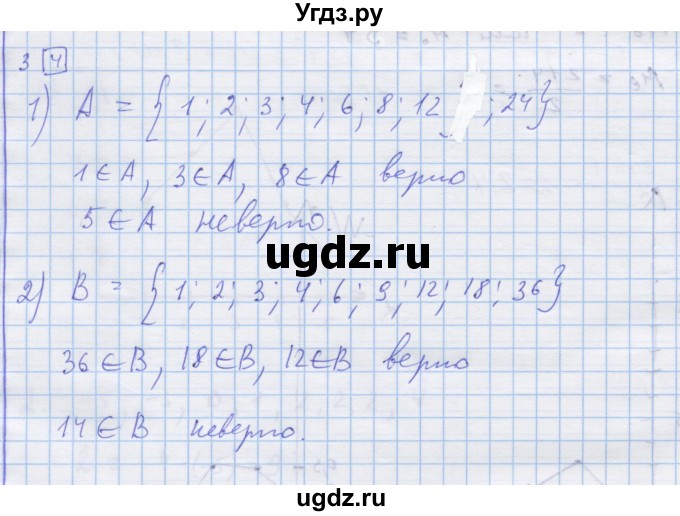 Угдз.ру
3 4
1) A = { 1; 2; 3; 4; 6; 8; 12 ; 24}
1∈A, 3∈A, 8∈A верно
5∈A неверно.
ugdz.ru
2) B = { 1; 2; 3; 4; 6; 9; 12; 18; 36}
36∈B, 18∈B, 12∈B верно
14∈B неверно.
ugdz.ru